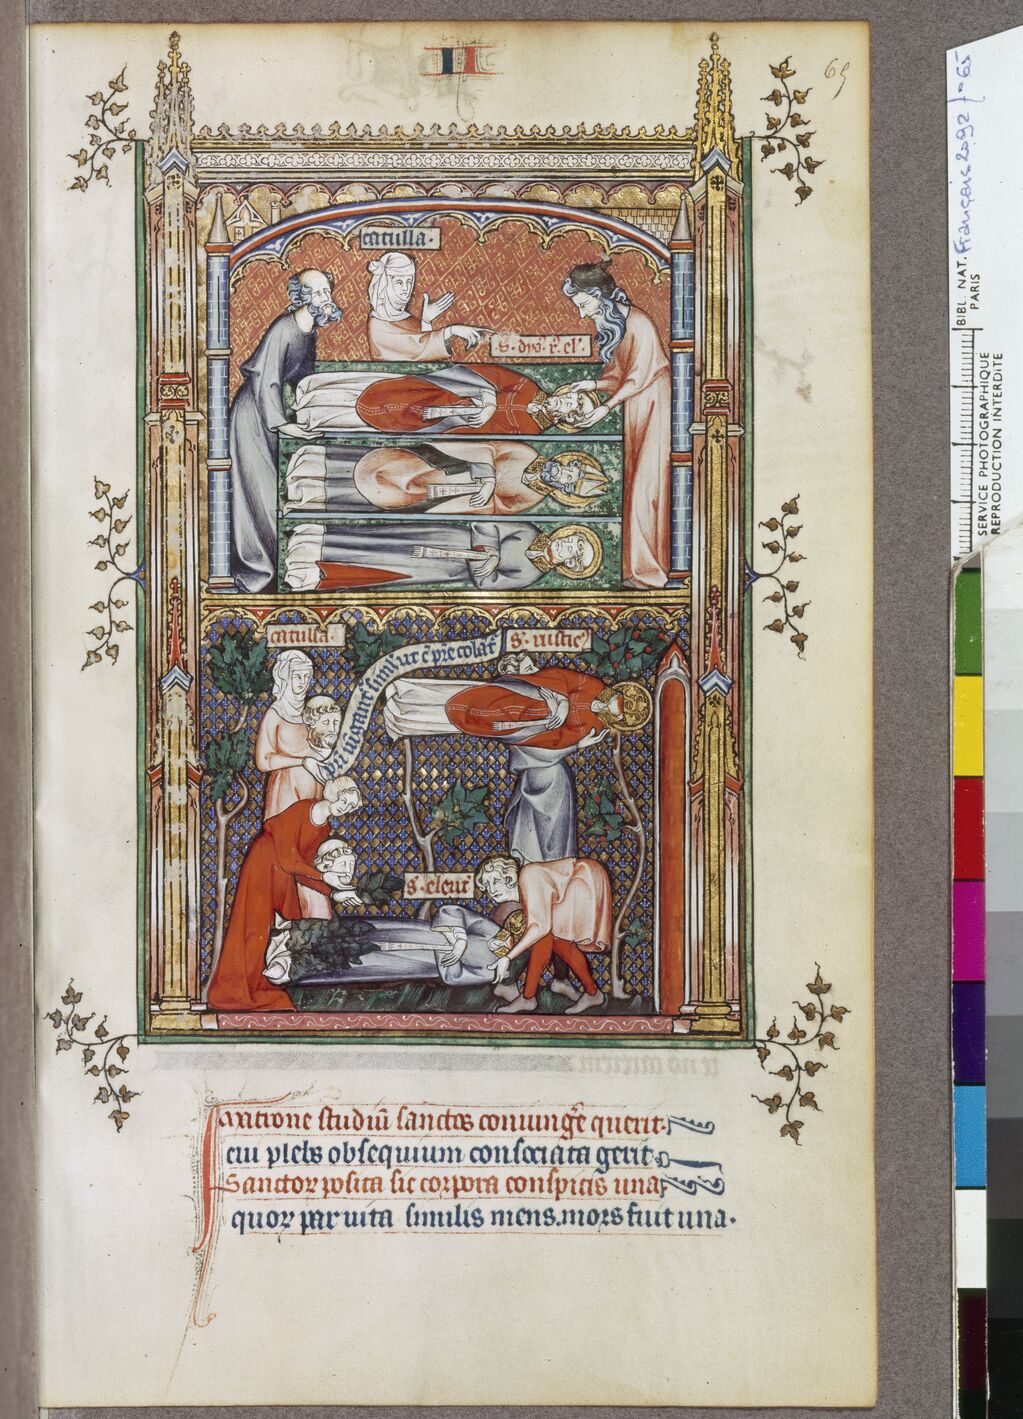 II
65
catulla.
s. dyo. r. el'.
catulla.
s. rustic'
s. eleut'
ratione studiū sanctos coniung̃e querit.
cui plebs obsequium consociata gerit.
Sanctoꝝ posita sic corpora conspicis una
quoꝝ par uita similis mens. mors fuit una.
BIBL. NAT. Français 2092 fo 65
PARIS
SERVICE PHOTOGRAPHIQUE
REPRODUCTION INTERDITE